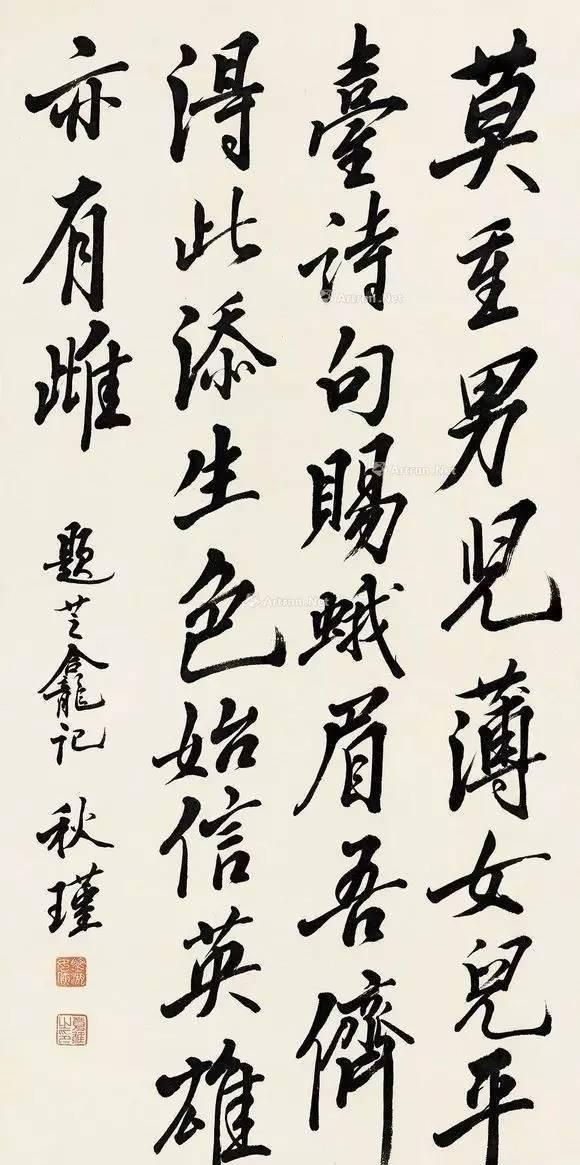 莫重男兒薄女兒平
臺詩句賜蛾眉吾儕
得此添生色始信英雄
亦有雌
題芝龕記 秋瑾
Artron.Net
Artron.Net
Artron.Net